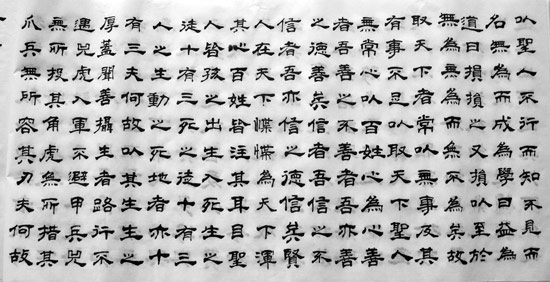 以聖人不行而知不見而
名無為而成為學日益為
道日損損之又損以至於
無為無為而無不為矣故
取天下者常以無事及其
有事不足以取天下聖人
無常心以百姓心為心善
者吾善之不善者吾亦善
之德善矣信者吾信之不
信者吾亦信之德信矣賢
人在天下惵惵為天下渾
其心百姓皆注其耳目聖
人皆孩之出生入死生之
徒十有三死之徒十有三
人之生動之死地者亦十
有三夫何故以其生生之
厚蓋聞善攝生者路行不
遇兕虎入軍不避甲兵兕
無所投其角虎無所措其
爪兵無所容其刃夫何故